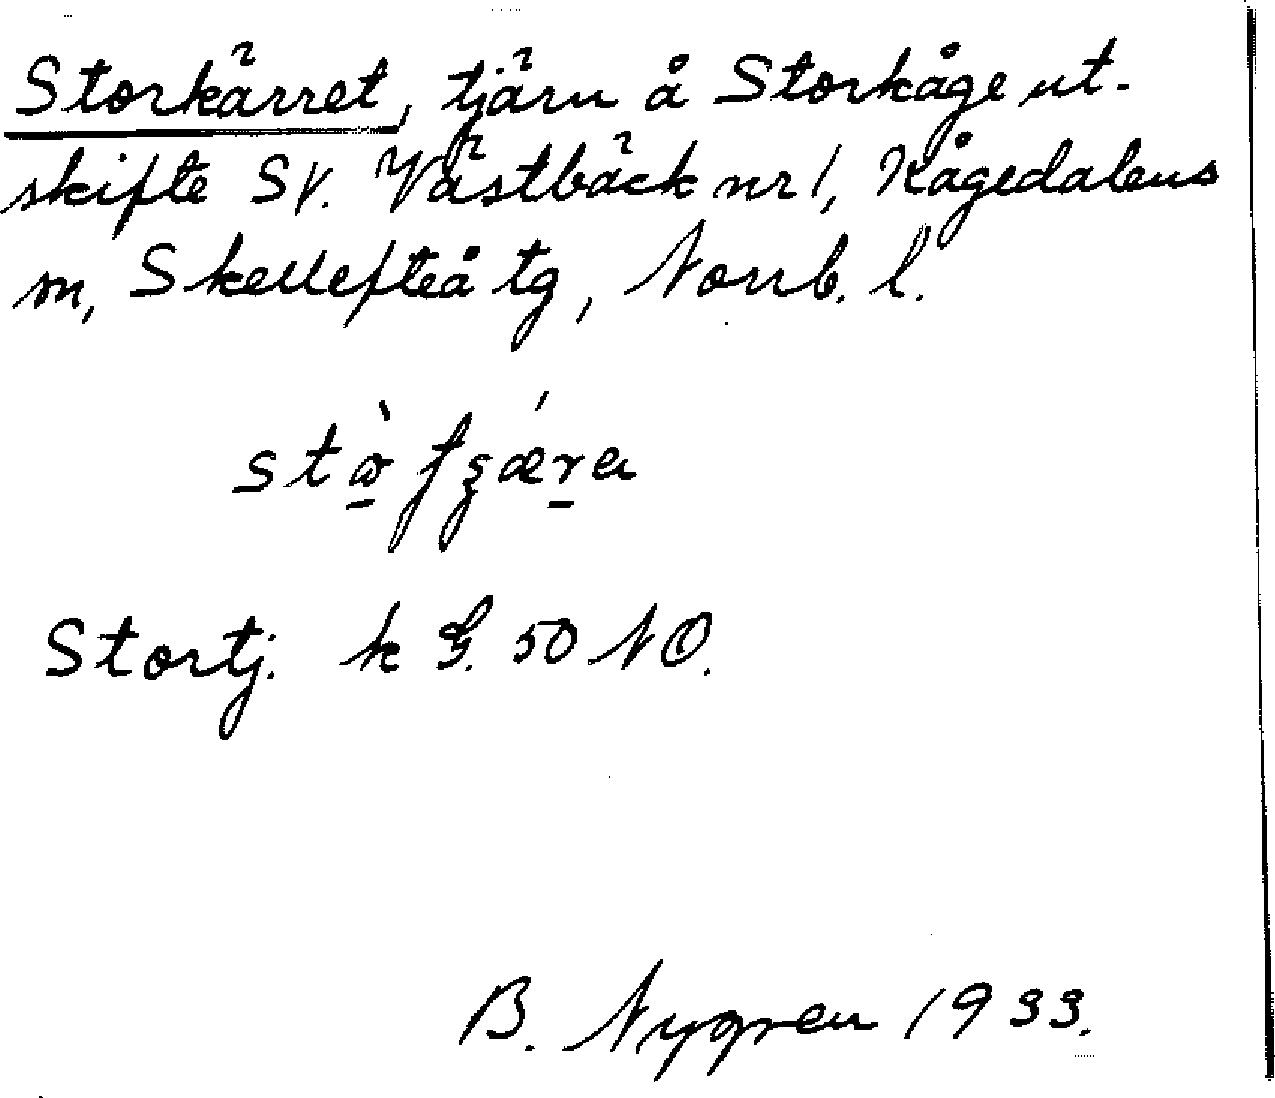 Storkärret, tjärn å Storkåge ut-
skifte SV. Västbäck nr 1, Kågedalens
m, Skellefteå tg, Norrb. l.
Stortj. k G. 50 NO.
B. Nygren 1933.